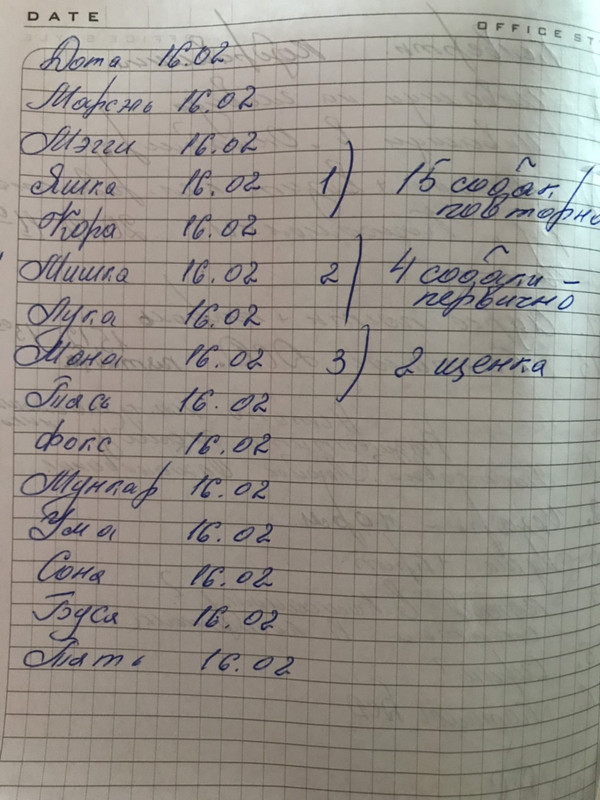 DATE
OFFICE ST
Дота 16.02
Марсэль 16.02
Мэгги 16.02
Яшка 16.02 1) 15 собак
повторно
Кора 16.02
Мишка 16.02 2) 4 собаки –
первично
Лука 16.02
Мона 16.02 3) 2 щенка
Тась 16.02
Фокс 16.02
16.02
Ума 16.02
Сона 16.02
Буся 16.02
16.02